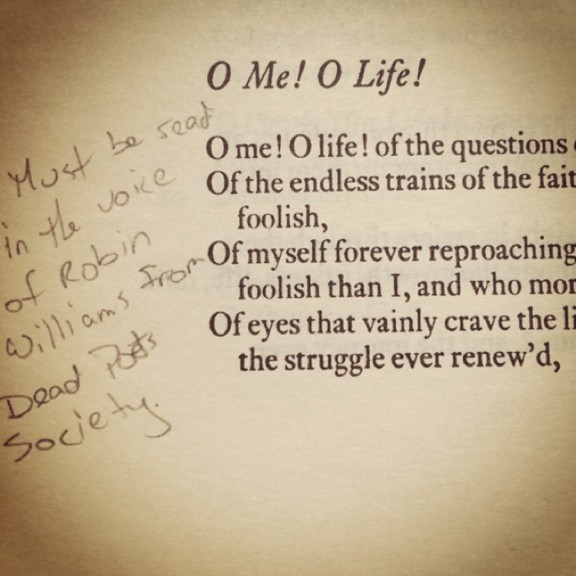 O Me! O Life!
O me! O life! of the questions
Of the endless trains of the fait
foolish,
Of myself forever reproaching
foolish than I, and who mor
Of eyes that vainly crave the li
the struggle ever renew'd,
Must be read
in the voice
of Robin
Williams from
Dead Poets
Society.